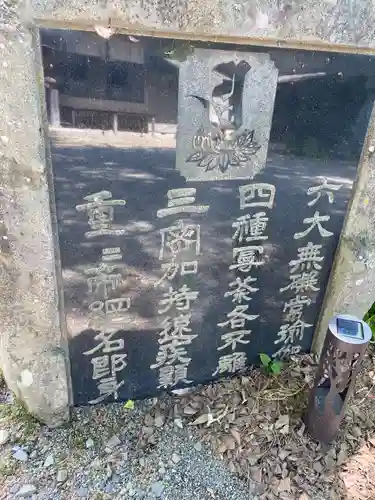 六大無礙常瑜伽
四種曼荼各不離
三密加持速疾顯
重重帝網名即身